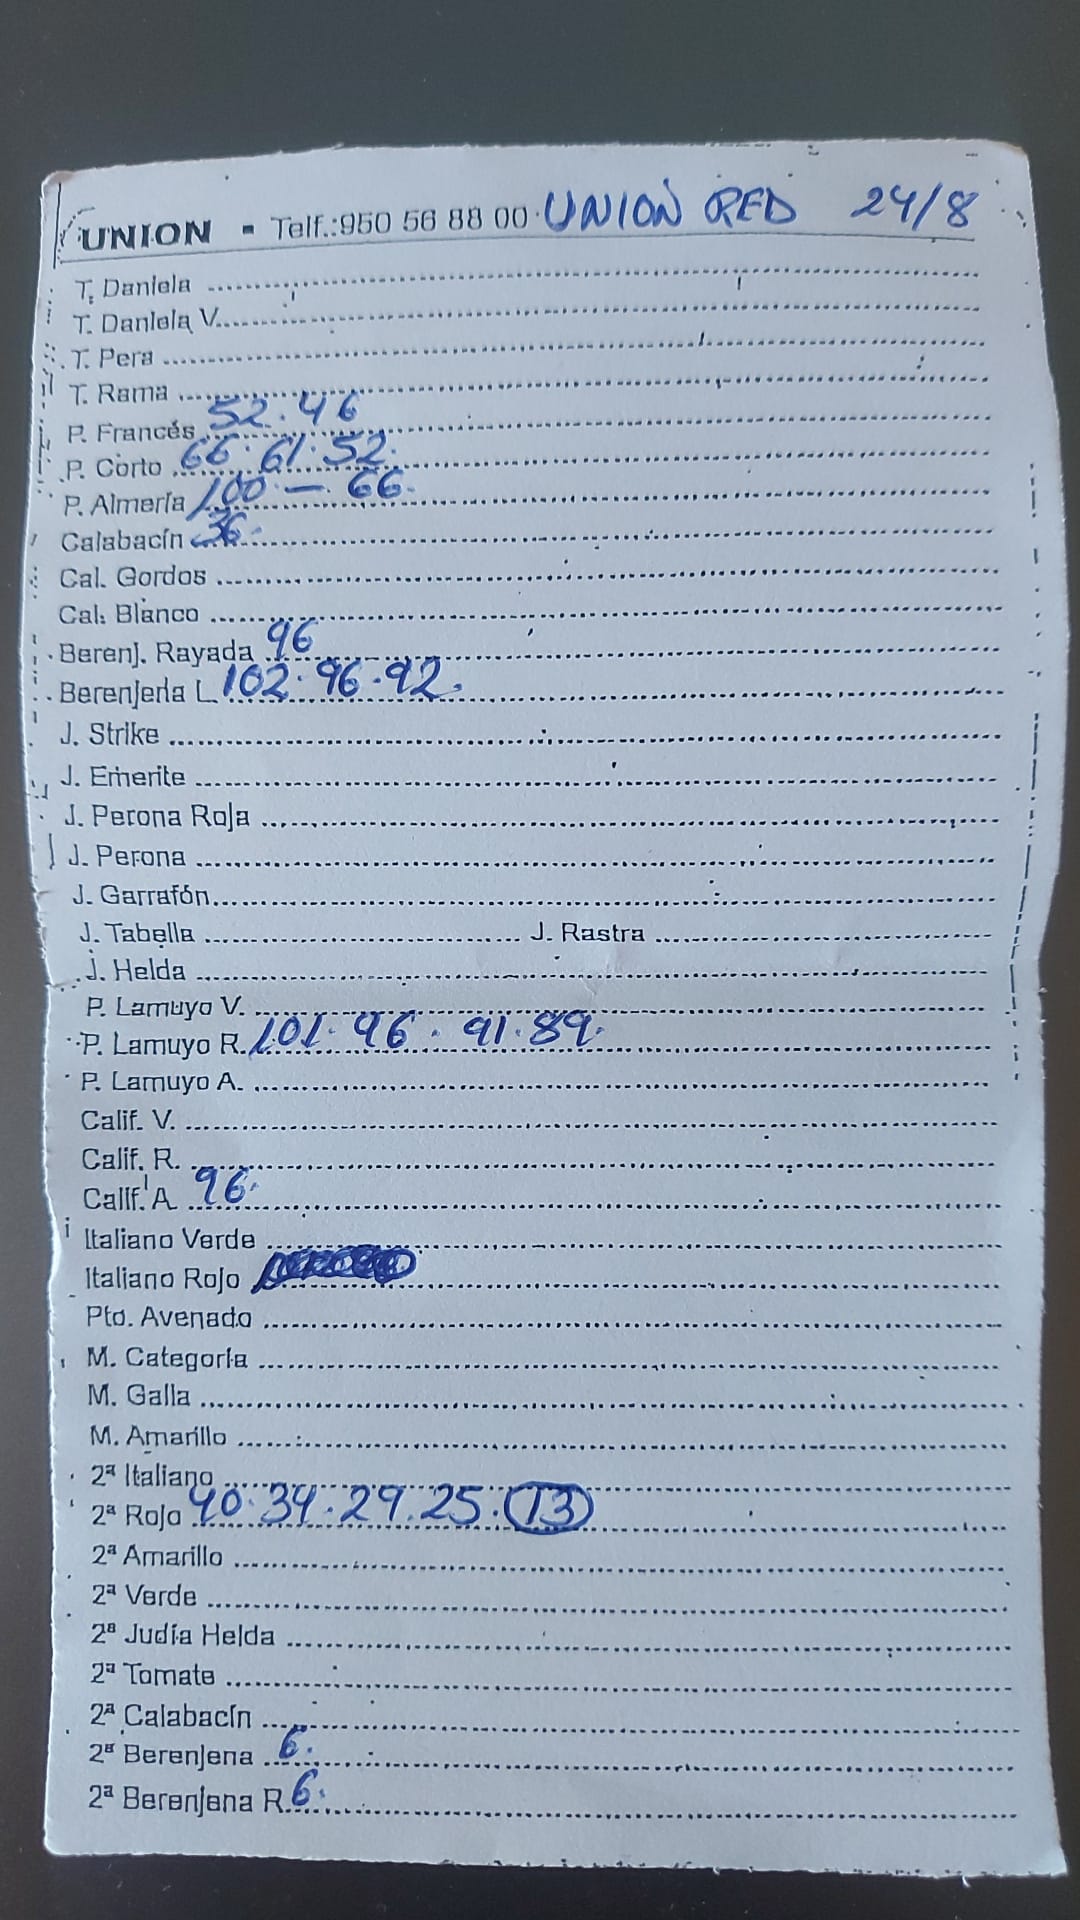 UNION - Telf.:950 56 88 00 UNION RED 24/8
T. Daniela
T. Daniela V.
T. Pera
T. Rama
P. Francés 52.46
P. Corto 66.61.52.
P. Almería 100 - 66.
Calabacín 36.
Cal. Gordos
Cal. Blanco
Berenj. Rayada 96
Berenjena L 102.96.92.
J. Strike
J. Emerite
J. Perona Roja
J. Perona
J. Garrafón
J. Tabella J. Rastra
J. Helda
P. Lamuyo V.
P. Lamuyo R. 101.96.91.89.
P. Lamuyo A.
Calif. V.
Calif. R.
Calif. A 96.
Italiano Verde
Italiano Rojo
Pto. Avenado
M. Categoría
M. Galla
M. Amarillo
2ª Italiano
2ª Rojo 40.34.29.25.13
2ª Amarillo
2ª Verde
2ª Judía Helda
2ª Tomate
2ª Calabacín
2ª Berenjena 6.
2ª Berenjena R 6.